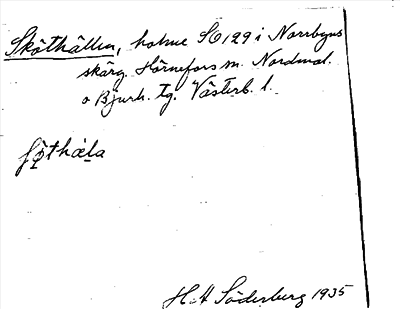 Sköthällen, holme S6129 i Norrbyns
skärg. Hörnefors sn. Nordmal.
o Bjurh. tg. Västerb. l.
H. H. Söderberg 1935